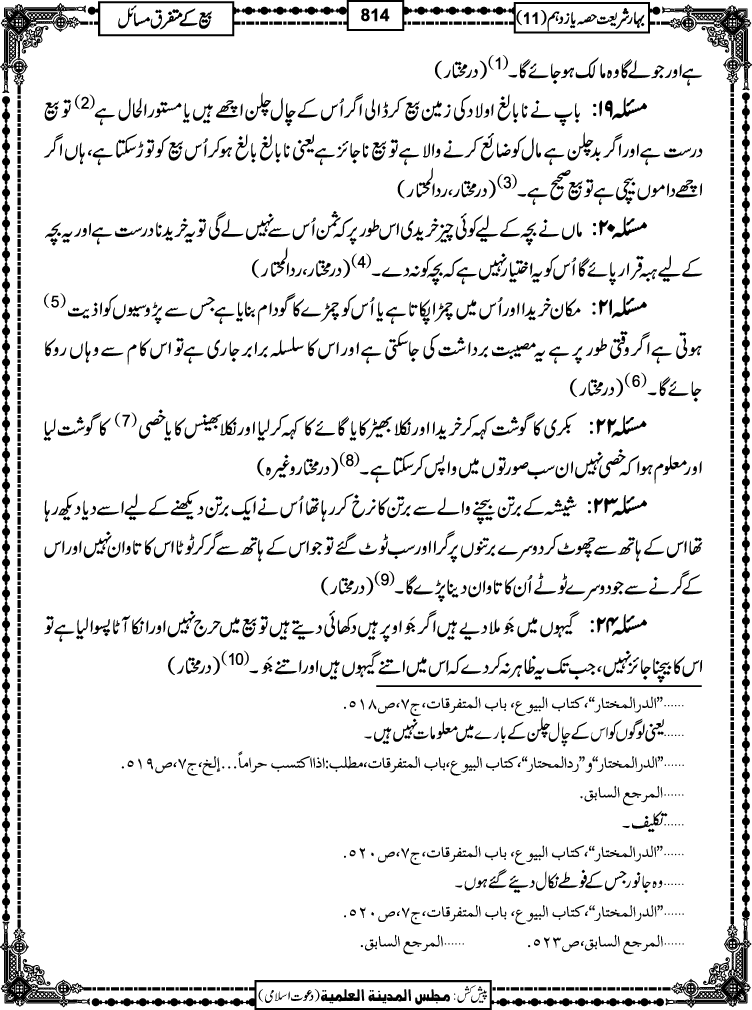 بہار شریعت حصہ یازدہم (11)
814
بیع کے متفرق مسائل
ہے اور جو لے گا وہ مالک ہو جائے گا۔(1) (درمختار)
مسئلہ ۱۹: باپ نے نابالغ اولاد کی زمین بیع کر ڈالی اگر اُس کے چال چلن اچھے ہیں یا مستور الحال ہے(2) تو بیع
درست ہے اور اگر بد چلن ہے مال کو ضائع کرنے والا ہے تو بیع ناجائز ہے یعنی نابالغ بالغ ہوکر اُس بیع کو توڑ سکتا ہے، ہاں اگر
اچھے داموں بیچی ہے تو بیع صحیح ہے۔(3) (درمختار، ردالمحتار)
مسئلہ ۲۰: ماں نے بچہ کے لیے کوئی چیز خریدی اس طور پر کہ ثمن اُس سے نہیں لے گی تو یہ خریدنا درست ہے اور یہ بچہ
کے لیے ہبہ قرار پائے گا اُس کو یہ اختیار نہیں ہے کہ بچہ کو نہ دے۔(4) (درمختار، ردالمحتار)
مسئلہ ۲۱: مکان خریدا اور اُس میں چمڑا پکاتا ہے یا اُس کو چمڑے کا گودام بنایا ہے جس سے پڑوسیوں کو اذیت(5)
ہوتی ہے اگر وقتی طور پر ہے یہ مصیبت برداشت کی جاسکتی ہے اور اس کا سلسلہ برابر جاری ہے تو اس کام سے وہاں روکا
جائے گا۔(6) (درمختار)
مسئلہ ۲۲: بکری کا گوشت کہہ کر خریدا اور نکلا بھیڑ کا یا گائے کا کہہ کر لیا اور نکلا بھینس کا یا خصی(7) کا گوشت لیا
اور معلوم ہوا کہ خصی نہیں ان سب صورتوں میں واپس کر سکتا ہے۔(8) (درمختار وغیرہ)
مسئلہ ۲۳: شیشہ کے برتن بیچنے والے سے برتن کا نرخ کر رہا تھا اُس نے ایک برتن دیکھنے کے لیے اسے دیا دیکھ رہا
تھا اس کے ہاتھ سے چھوٹ کر دوسرے برتنوں پر گرا اور سب ٹوٹ گئے تو جو اس کے ہاتھ سے گر کر ٹوٹا اس کا تاوان نہیں اور اس
کے گرنے سے جو دوسرے ٹوٹے اُن کا تاوان دینا پڑے گا۔(9) (درمختار)
مسئلہ ۲۴: گیہوں میں جَو ملا دیے ہیں اگر جَو اوپر ہیں دکھائی دیتے ہیں تو بیع میں حرج نہیں اور انکا آٹا پسوالیا ہے تو
اس کا بیچنا جائز نہیں، جب تک یہ ظاہر نہ کر دے کہ اس میں اتنے گیہوں ہیں اور اتنے جَو۔(10) (درمختار)
......”الدرالمختار“، کتاب البیوع، باب المتفرقات، ج۷، ص۵۱۸.
......یعنی لوگوں کو اس کے چال چلن کے بارے میں معلومات نہیں ہیں۔
......”الدرالمختار“ و”ردالمحتار“، کتاب البیوع، باب المتفرقات، مطلب: اذا اکتسب حراماً...إلخ، ج۷، ص۵۱۹.
......المرجع السابق.
......تکلیف۔
......”الدرالمختار“، کتاب البیوع، باب المتفرقات، ج۷، ص۵۲۰.
......وہ جانور جس کے فوطے نکال دیئے گئے ہوں۔
......”الدرالمختار“، کتاب البیوع، باب المتفرقات، ج۷، ص۵۲۰.
......المرجع السابق، ص۵۲۳. ......المرجع السابق.
پیش کش: مجلس المدينة العلمية (دعوت اسلامی)